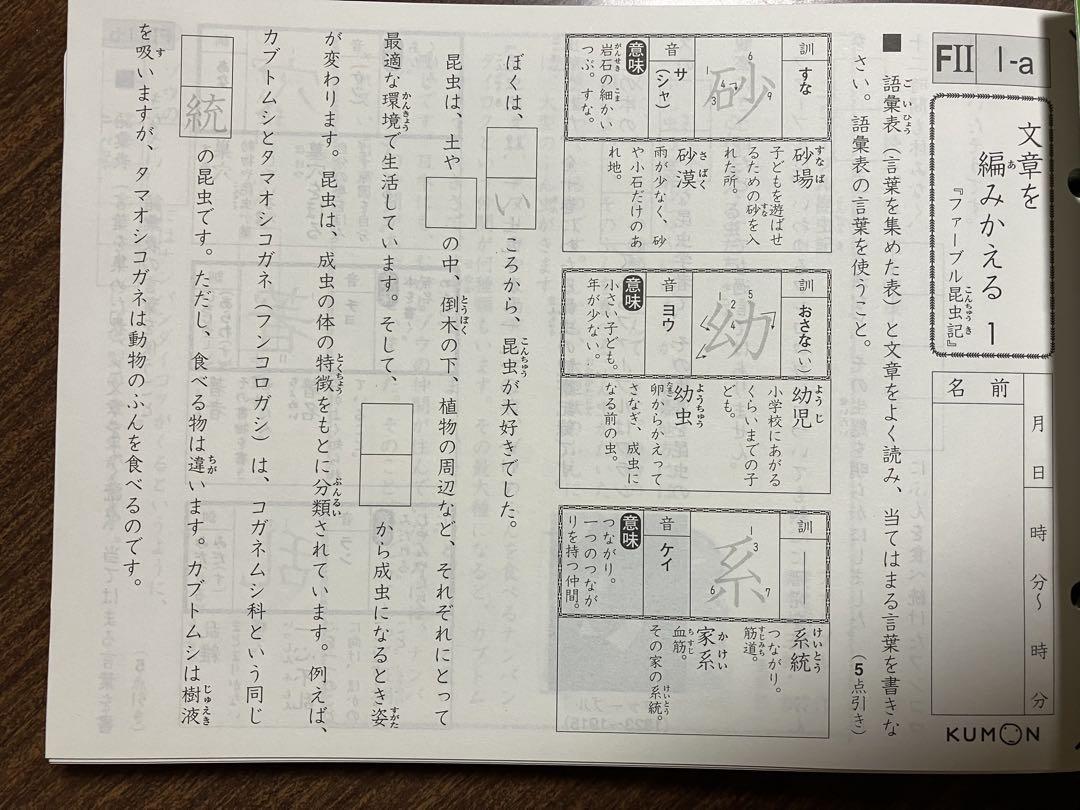 FⅡ 1-a
文章を
編みかえる 1
『ファーブル昆虫記』
名前
月 日 時 分～ 時 分
KUMON
■ 語彙表（言葉を集めた表）と文章をよく読み、当てはまる言葉を書きな
さい。語彙表の言葉を使うこと。
（5点引き）
砂
訓 すな
音 サ（シャ）
意味
岩石の細かい
つぶ。すな。
砂場
子どもを遊ばせ
るための砂を入
れた所。
砂漠
雨が少なく、砂
や小石だけのあ
れ地。
幼
訓 おさな（い）
音 ヨウ
意味
小さい子ども。
年が少ない。
幼児
小学校にあがる
くらいまでの子
ども。
幼虫
卵からかえって
さなぎ、成虫に
なる前の虫。
系
訓 ―
音 ケイ
意味
つながり。
一つのつなが
りを持つ仲間。
系統
つながり。
筋道。
家系
その家の系統。
血筋。
ぼくは、 い ころから、昆虫が大好きでした。
昆虫は、土や の中、倒木の下、植物の周辺など、それぞれにとって
最適な環境で生活しています。そして、 から成虫になるとき姿
が変わります。昆虫は、成虫の体の特徴をもとに分類されています。例えば、
カブトムシとタマオシコガネ（フンコロガシ）は、コガネムシ科という同じ
統 の昆虫です。ただし、食べる物は違います。カブトムシは樹液
を吸いますが、タマオシコガネは動物のふんを食べるのです。